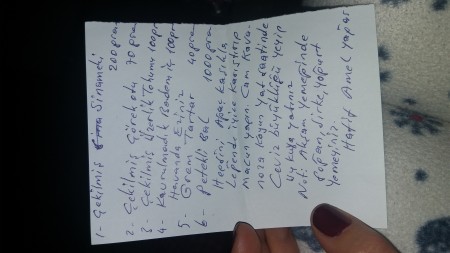 1- Çekilmiş Sinameki
200gram
2- Çekilmiş Çörek otu 70gram
3- Çekilmiş Üzerlik Tohumu 100gr
4- Kavrulmadık Badem iç 100gram
Havanda Eziniz
5- Gram Tartar 40gram
6- Petekli Bal 1000gram
Hepsini Ağaç kaşıkla
Lepende iyice karıştırıp
macun yapın. Cam Kava-
noza koyun Yat saatinde
Ceviz büyüklüğü yeyip
uykuya yatınız
Not: Akşam Yemeğinde
soğan, sirke, yoğurt
Yemeyiniz
Hafif Amel yapar